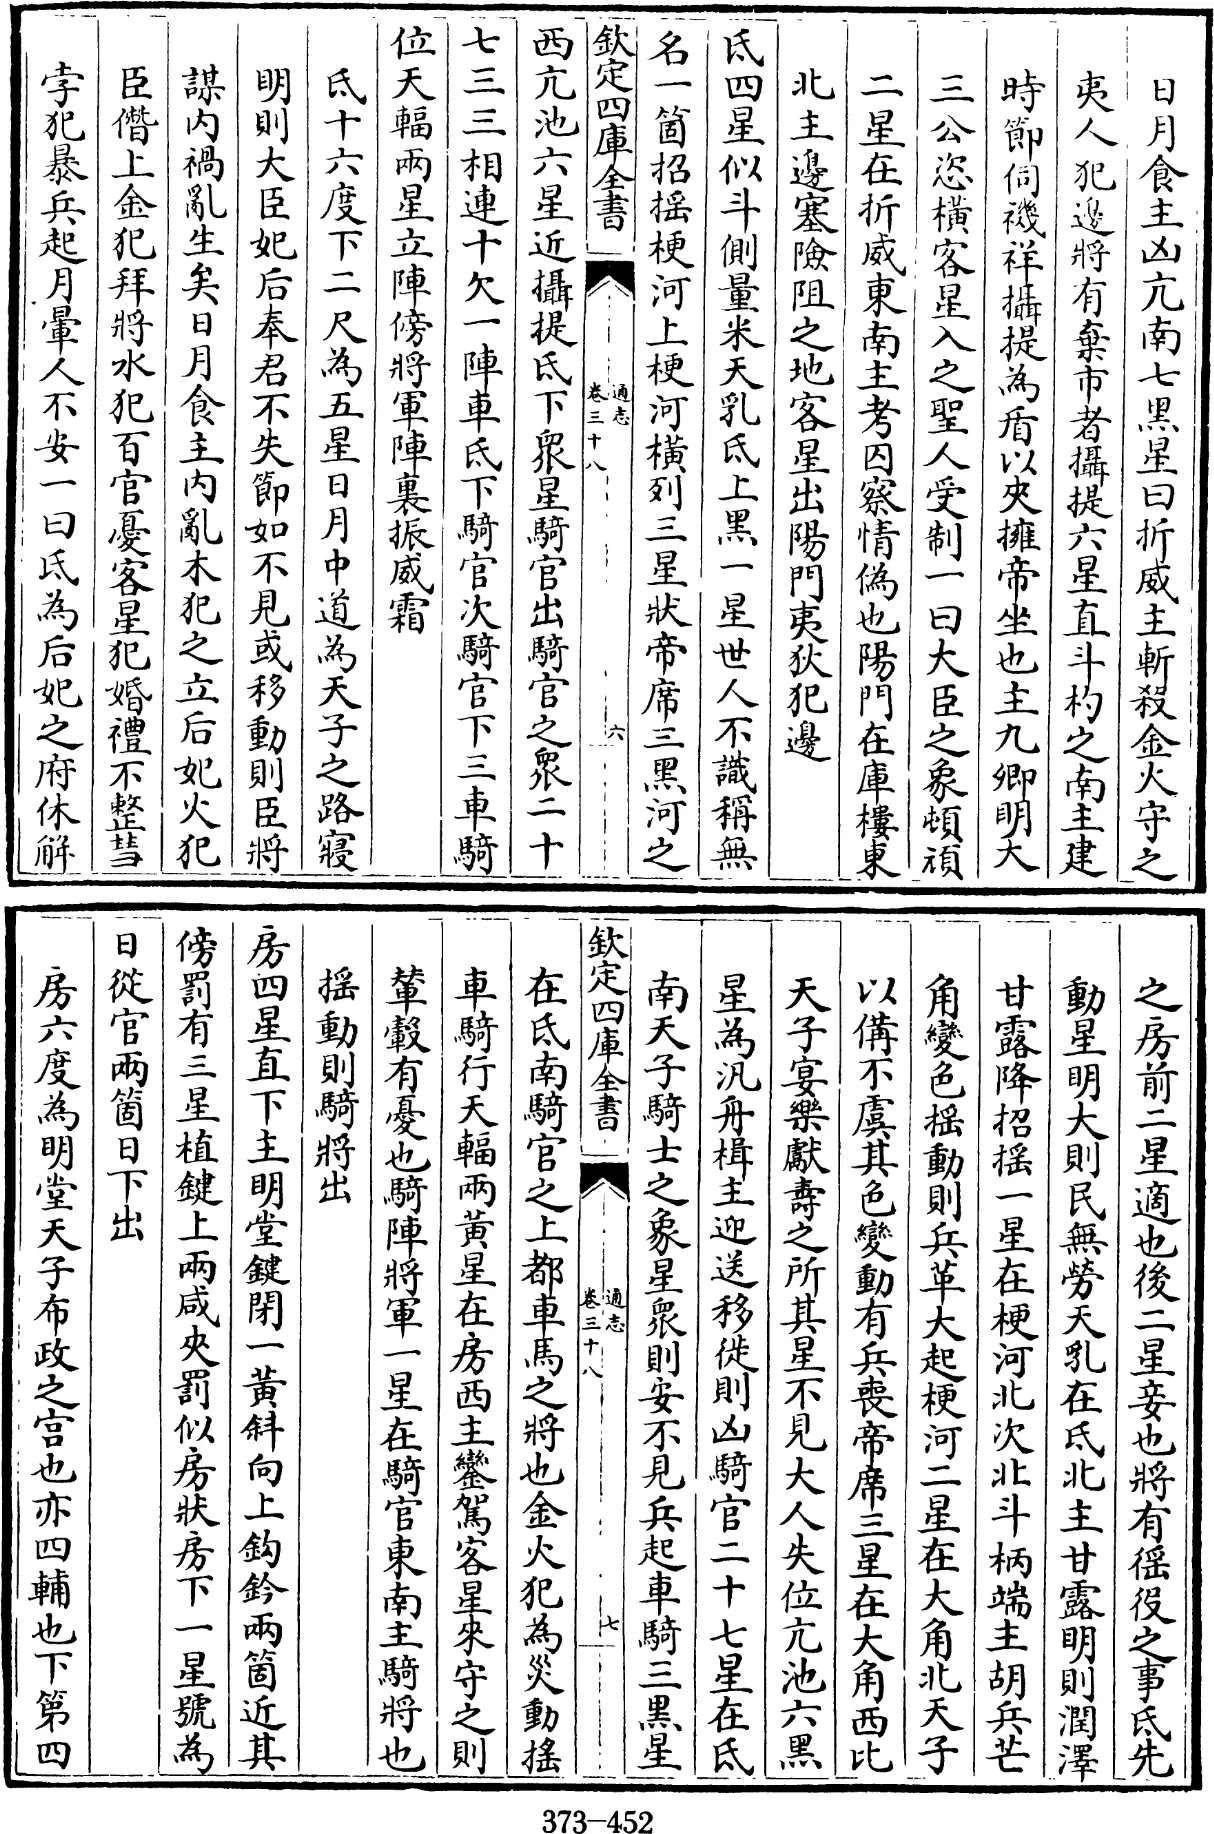 日月食主凶亢南七黑星曰折威主斬殺金火守之
夷人犯邊將有棄市者攝提六星直斗杓之南主建
時節伺禨祥攝提為盾以夾擁帝坐也主九卿明大
三公恣橫客星入之聖人受制一曰大臣之象頓頑
二星在折威東南主考囚察情偽也陽門在庫樓東
北主邊塞險阻之地客星出陽門夷狄犯邊
氐四星似斗側量米天乳氐上黑一星世人不識稱無
名一箇招揺梗河上梗河橫列三星狀帝席三黑河之
欽定四庫全書
通志
卷三十八
六
西亢池六星近攝提氐下衆星騎官出騎官之衆二十
七三三相連十欠一陣車氐下騎官次騎官下三車騎
位天輻兩星立陣傍將軍陣裏振威霜
氐十六度下二尺為五星日月中道為天子之路寢
明則大臣妃后奉君不失節如不見或移動則臣將
謀内禍亂生矣日月食主内亂木犯之立后妃火犯
臣僭上金犯拜將水犯百官憂客星犯婚禮不整彗
孛犯暴兵起月暈人不安一曰氐為后妃之府休解
之房前二星適也後二星妾也將有徭役之事氐先
動星明大則民無勞天乳在氐北主甘露明則潤澤
甘露降招揺一星在梗河北次北斗柄端主胡兵芒
角變色揺動則兵革大起梗河二星在大角北天子
以備不虞其色變動有兵喪帝席三星在大角西比
天子宴樂獻壽之所其星不見大人失位亢池六黑
星為汎舟楫主迎送移徙則凶騎官二十七星在氐
南天子騎士之象星衆則安不見兵起車騎三黑星
欽定四庫全書
通志
卷三十八
七
在氐南騎官之上都車馬之將也金火犯為災動揺
車騎行天輻兩黃星在房西主鑾駕客星來守之則
輦轂有憂也騎陣將軍一星在騎官東南主騎將也
揺動則騎將出
房四星直下主明堂鍵閉一黃斜向上鈎鈐兩箇近其
傍罰有三星植鍵上兩咸夾罰似房狀房下一星號為
日從官兩箇日下出
房六度為明堂天子布政之宫也亦四輔也下第四
373-452